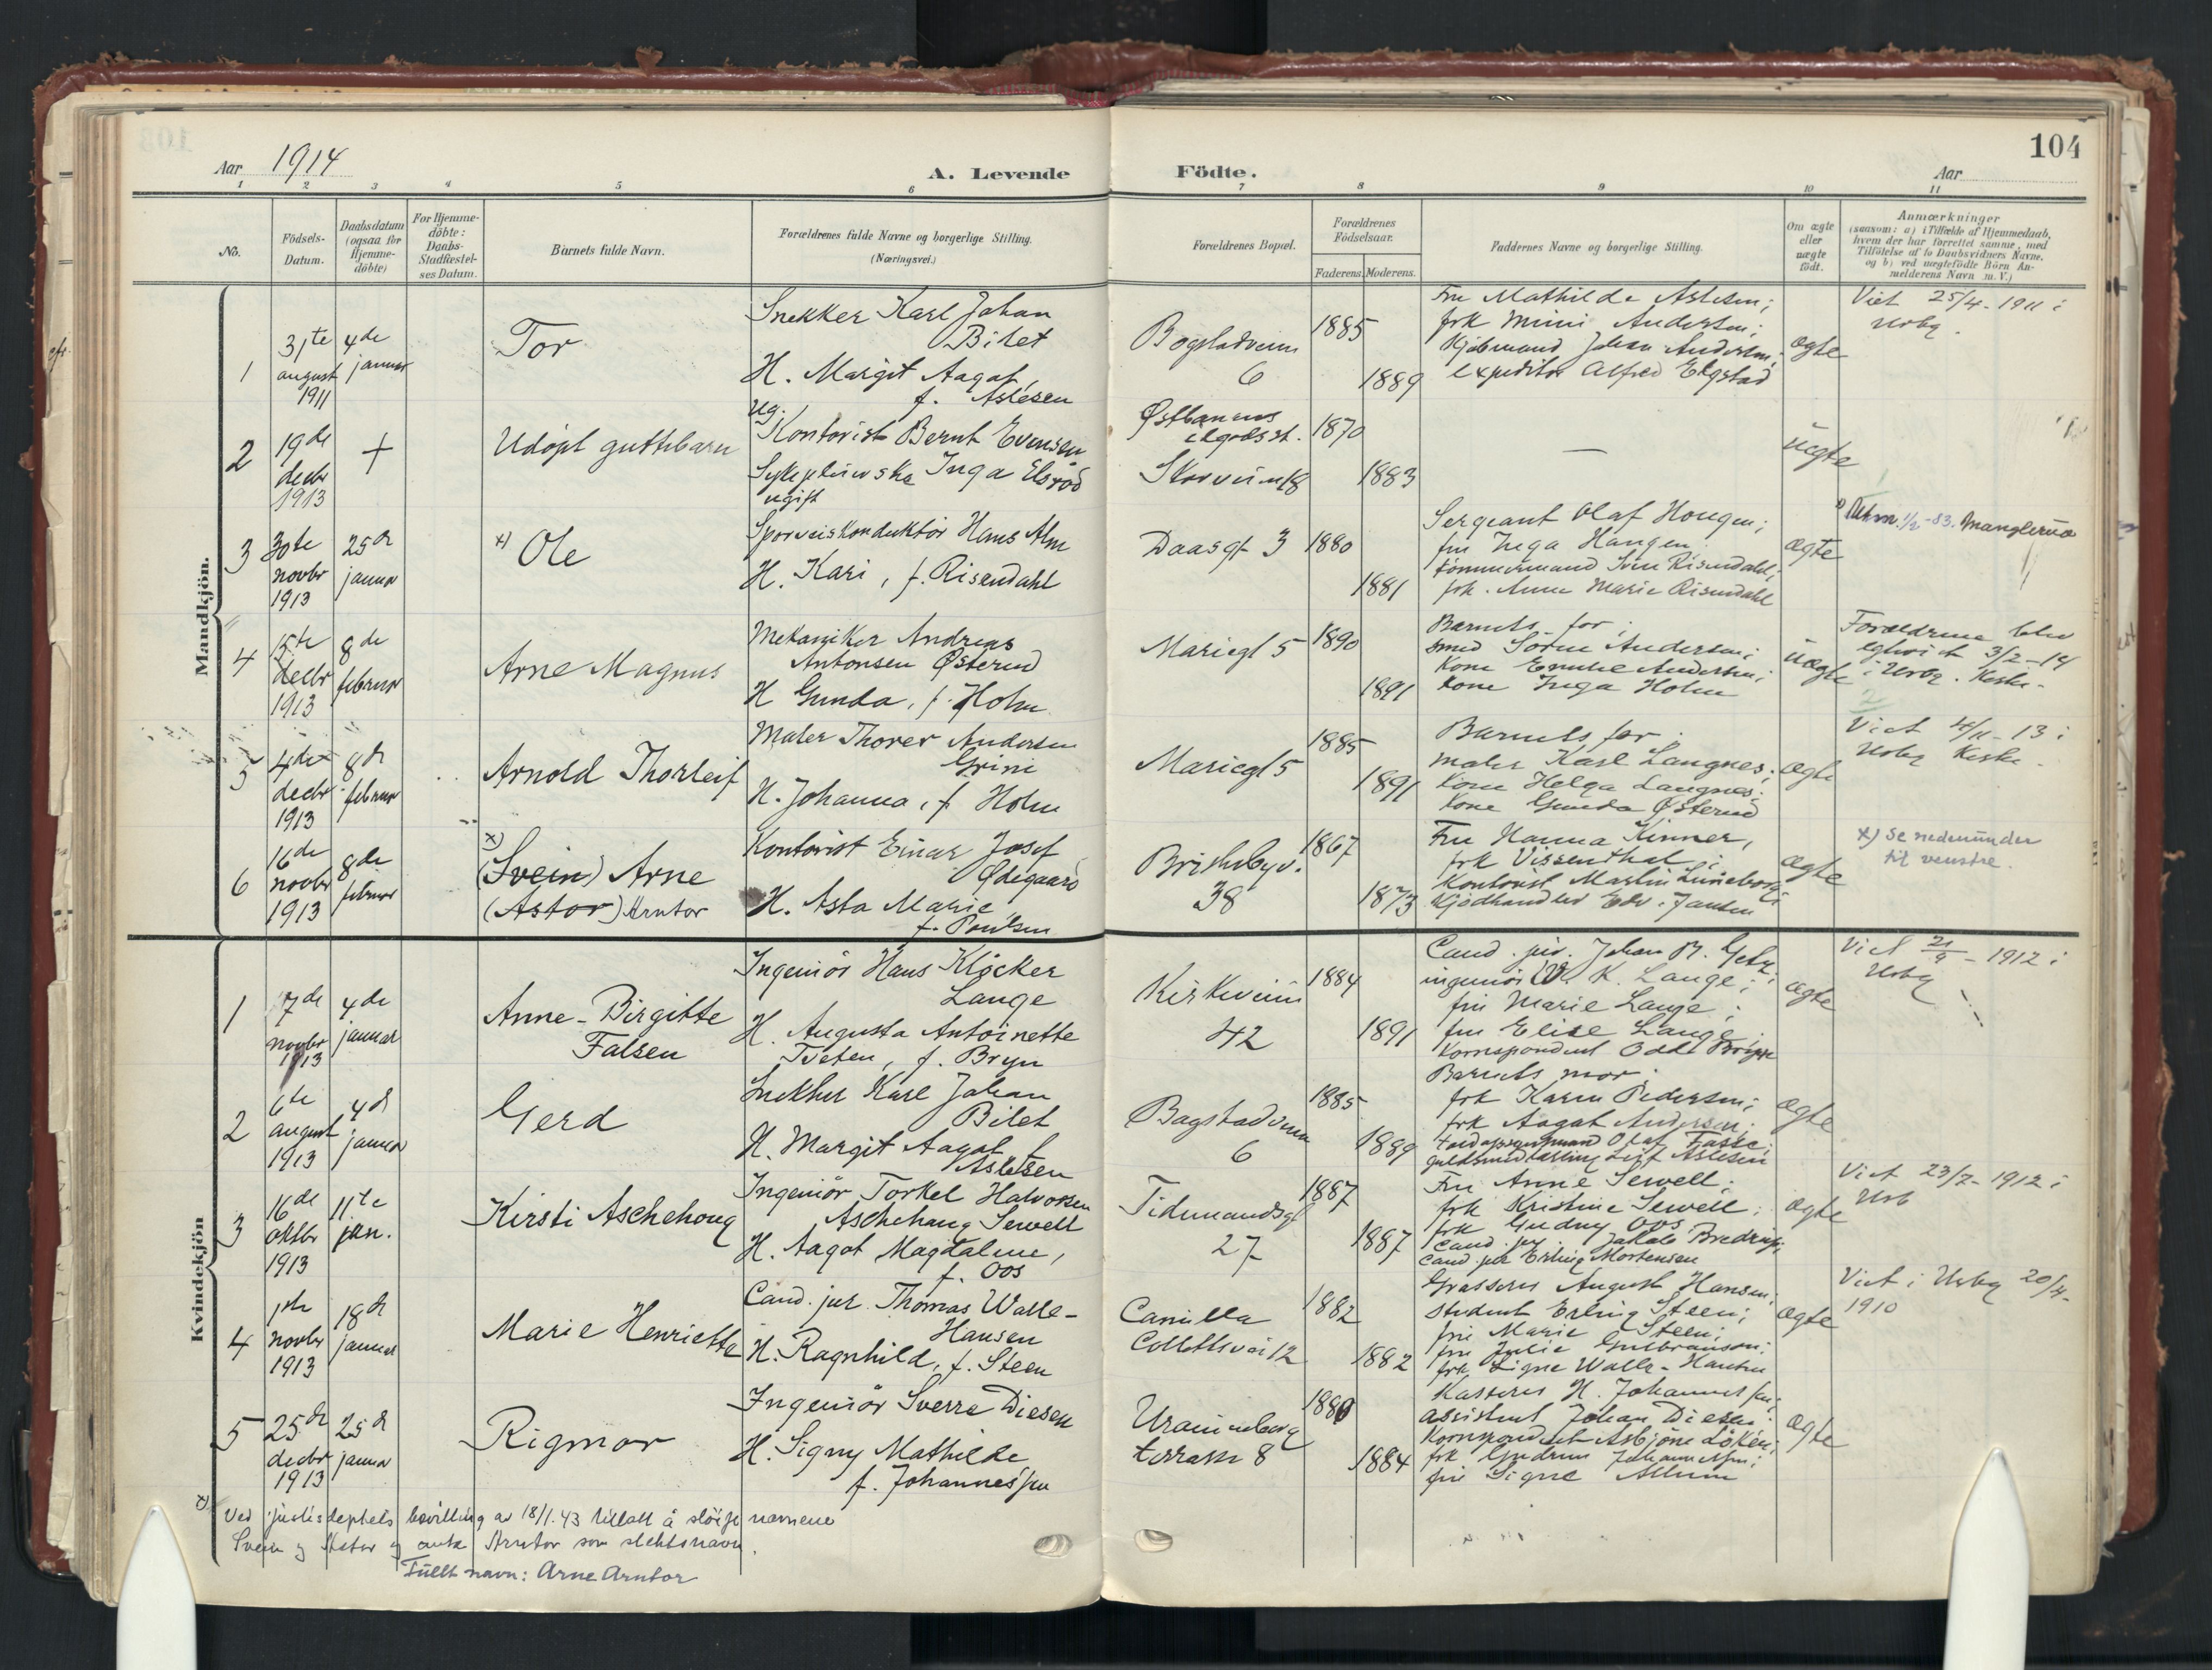 104
Aar 1914
A. Levende
Födte.
Aar
1 2 3 4 5 6 7 8 9 10 11
No.
Födsels-
Datum.
Daabsdatum
(ogsaa for
Hjemme-
döbte)
For Hjemme-
döbte:
Daabs-
Stadfæstel-
ses Datum.
Barnets fulde Navn.
Forældrenes fulde Navne og borgerlige Stilling.
(Næringsvei.)
Forældrenes Bopæl.
Forældrenes
Födselsaar.
Faderens. Moderens.
Faddernes Navne og borgerlige Stilling.
Om ægte
eller
uægte
födt.
Anmærkninger
(saasom: a) i Tilfælde af Hjemmedaab,
hvem der har forrettet samme, med
Tilföielse af to Daabsvidners Navne,
og b) ved uægtefödte Börn An-
melderens Navn m. V.)
Mandkjön.
1
31te
august
1911
4de
januar
Tor
Snekker Karl Johan
Bilet
H. Margit Aagot,
f. Aslesen
Bogstadveien
6
1885
1889
Fru Mathilde Aslesen;
frk Mimi Andersen;
Kjöbmand Johan Andersen;
expeditör Alfred Ekgstad
ægte
Viet 25/4-1911 i
Urbg.
2
19de
decbr
1913
+
Udöpt guttebarn
ug.
Kontorist Bernt Evensen
Sykepleierske Inga Elsröd
ugift
Østbanens
ilgodsst.
1870
1883
—
uegte
3
30te
novbr
1913
25de
januar
x) Ole
Sporveiskonduktör Hans Alm
H. Kari, f. Risendahl
Daasgt 3
1880
1881
Sergeant Olaf Hougen;
fru Inga Haugen
tömmermand Sven Risendahl;
frk. Anne Marie Risendahl
ægte
x) Utm. 1/2-83. Manglerud
4
15de
decbr
1913
8de
februar
Arne Magnus
Mekaniker Andreas
Antonsen Østerud
H Gunda, f. Holm
Mariegt 5
1890
1891
Barnets far;
smed Sören Andersen;
kone Emilie Andersen;
kone Inga Holm
uægte
Forældrene blev
egteviet 3/2-14
i Urbg. Kirke-
5
4de
decbr
1913
8de
februar
Arnold Thorleif
Maler Thorer Andersen
Grini
H. Johanna, f. Holm
Mariegt 5
1885
1891
Barnets far;
maler Karl Langnes;
kone Helga Langnes;
kone Gunda Østerud
ægte
Viet 4/11-13 i
Urbg Kirke-
6
16de
novbr
1913
8de
februar
x)
(Svein) Arne
(Astor) Arntor
Kontorist Einar Josef
Ødegaard
H. Asta Marie,
f. Poulsen
Briskebyv.
38
1867
1873
Fru Hanna Kinner,
frk Vissenthal;
Kontorist Martin Lüneborg;
Kjödhandler Edv. Jansen
ægte
x) se nedenunder
til venstre.
Kvindekjön
1
17de
novbr
1913
4de
januar
Anne-Birgitte
Falsen
Ingeniör Hans Klöcker
Lange
H. Augusta Antoinette
Tveten, f. Bryn
Kirkeveien
42
1884
1891
Cand. jur. Johan R. Getz;
ingeniör K. Lange;
fru Marie Lange;
fru Elise Lange;
Korrespondent Odd
ægte
Viet 21/9-1912 i
Urbg
2
6te
august
1913
4de
januar
Gerd
Snekker Karl Johan
Bilet
H. Margit Aagot f
Aslesen
Bogstadveien
6
1885
1889
Barnets mor;
frk Karen Pedersen;
frk Aagot Andersen;
Olaf Faske;
guldsmedlærling Leif Aslesen
ægte
3
16de
oktbr
1913
11te
jan.
Kirsti Aschehoug
Ingeniör Torkel Halvorsen
Aschehoug Sewell
H. Aagot Magdalene,
f. Oos
Tidemandsgt
27
1887
1887
Fru Anne Sewell;
frk Kristine Sewell;
frk Gudny Oos
cand. jur. Jakob Bredrup;
cand. jur Erling Mortensen
ægte
Viet 23/7-1912 i
Urb
4
1ste
novbr
1913
18de
januar
Marie Henriette
Cand. jur. Thomas Walle-
Hansen
H. Ragnhild, f. Steen
Camilla
Collettsvei 12
1882
1882
Grosserer August Hansen;
student Erling Steen;
fru Marie Steen;
fru Julie Gulbranson;
frk Signe Walle-Hansen
ægte
Viet i Urbg 20/4-
1910
5
25de
decbr
1913
25de
januar
Rigmor
Ingeniör Sverre Diesen
H. Signy Mathilde
f. Johannessen
Uranienborg
terrasse 8
1880
1884
Kasserer H. Johannessen;
assistent Johan Diesen;
Korrespondent Asbjörn Löken;
frk Gudrun Johannessen;
fru Signe
ægte
x)
Ved justisdeptets bevilling av 18/1.43 tillatt å slöife navnene
Svein og Astor og anta Arntor som slektsnavn.
Fullt navn: Arne Arntor